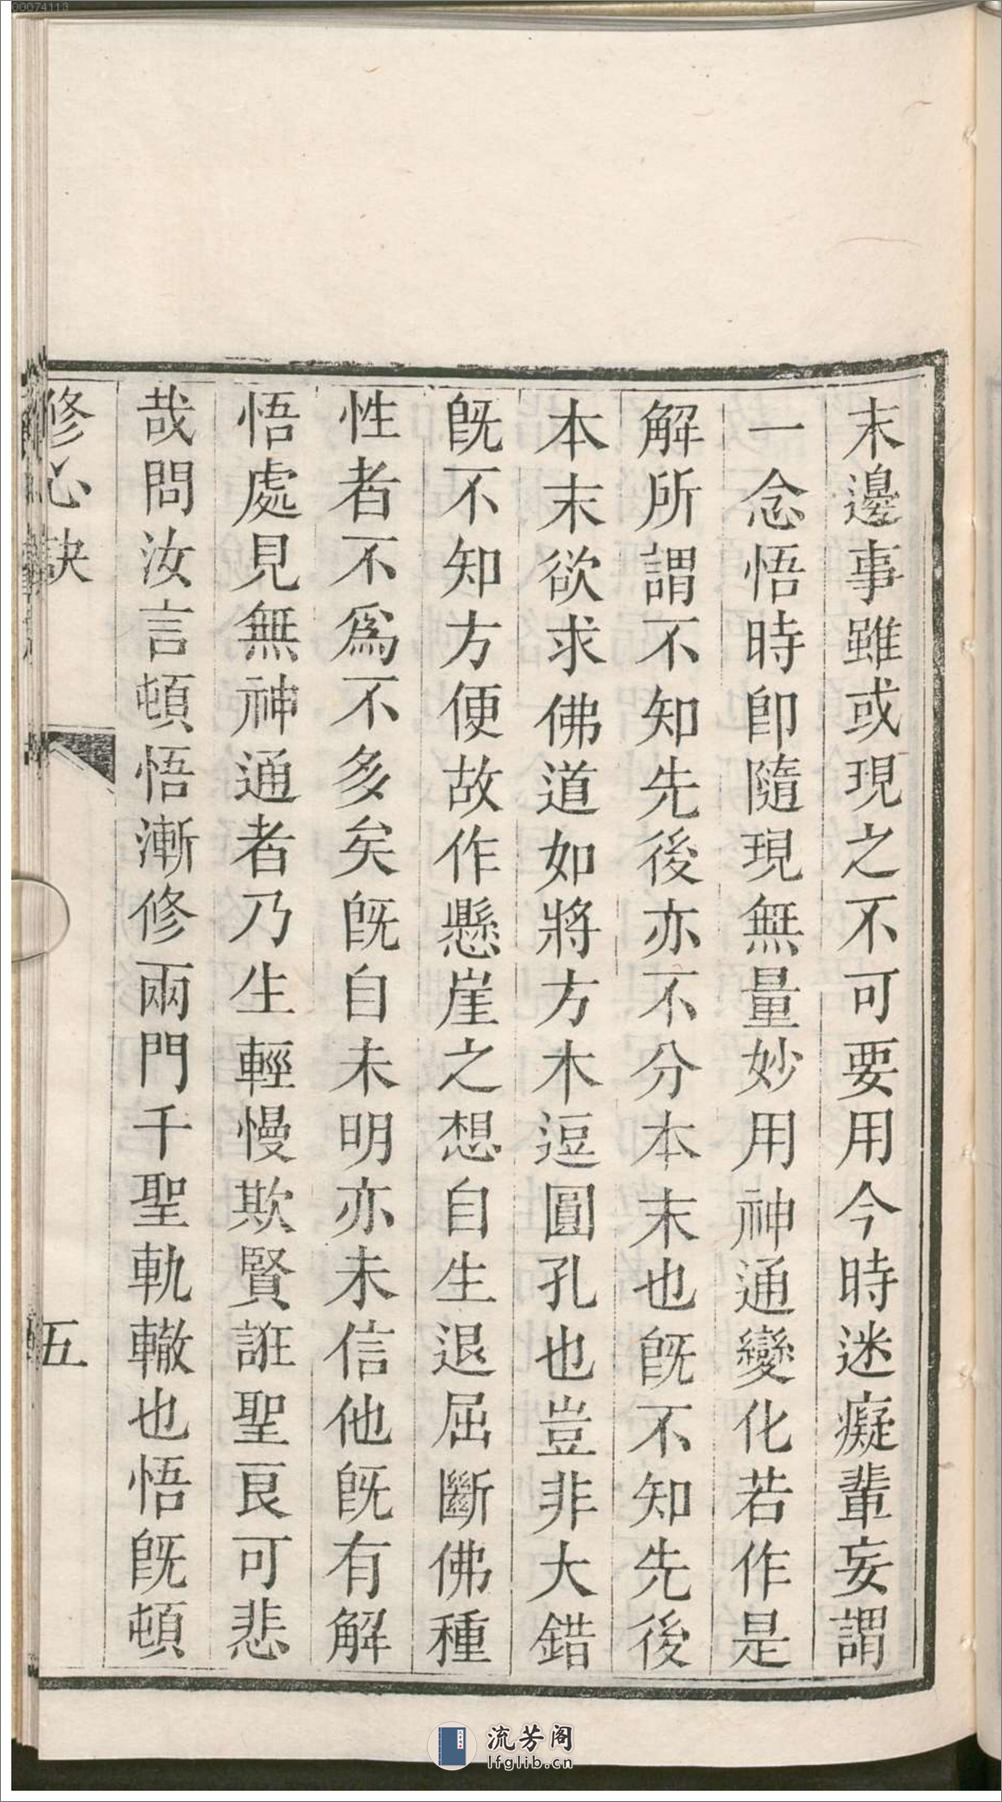 末邊事雖或現之不可要用今時迷癡輩妄謂
一念悟時卽隨現無量妙用神通變化若作是
解所謂不知先後亦不分本末也旣不知先後
本末欲求佛道如將方木逗圓孔也豈非大錯
旣不知方便故作懸崖之想自生退屈斷佛種
性者不爲不多矣旣自未明亦未信他旣有解
悟處見無神通者乃生輕慢欺賢誑聖良可悲
哉問汝言頓悟漸修兩門千聖軌轍也悟旣頓
修心訣
五
00074113
流芳阁
lfglib.cn